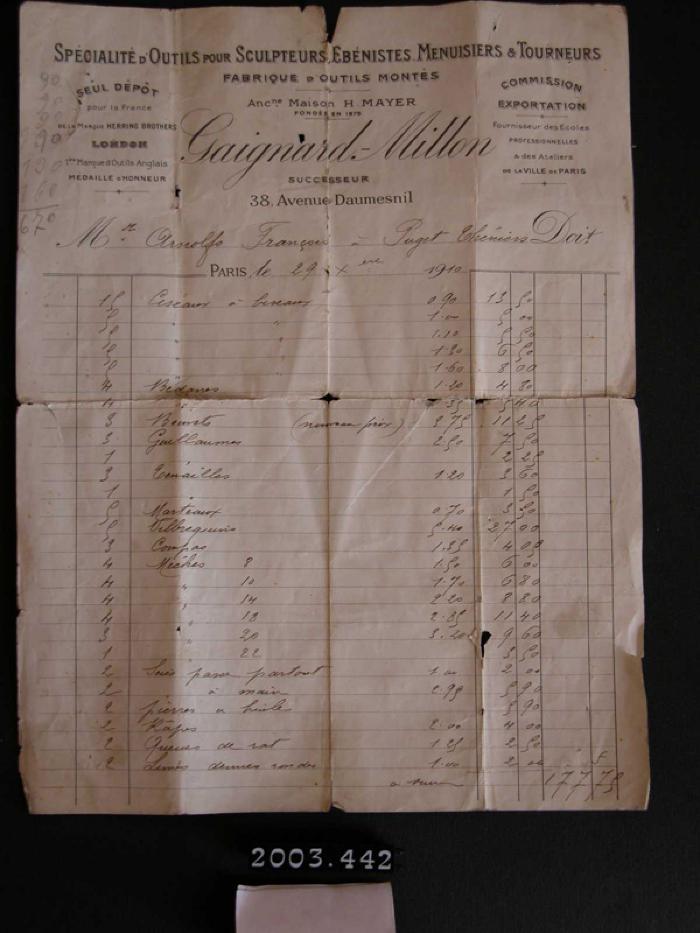 SPÉCIALITÉ D'OUTILS POUR SCULPTEURS, EBÉNISTES, MENUISIERS & TOURNEURS
FABRIQUE D'OUTILS MONTÉS
SEUL DÉPÔT
pour la France
DE LA Marque HERRING BROTHERS
LONDON
1re Marque d'Outils Anglais
MÉDAILLE D'HONNEUR
Ancne Maison H. MAYER
FONDÉE EN 1879
Gaignard-Millon
SUCCESSEUR
38, Avenue Daumesnil
COMMISSION
EXPORTATION
Fournisseur des Ecoles
PROFESSIONNELLES
& des Ateliers
DE LA VILLE DE PARIS
670
Mr Arnolfo François à Puget Théniers Doit
PARIS, le 29 Xere 1910
15 Ciseaux à biseaux 0.90 13 50
5 " " 1.00 5 00
5 " " 1.10 5 50
5 " " 1.30 6 50
5 " " 1.60 8 00
4 Bédanes 1.20 4 80
4 " 1.35 5 40
3 (nouveau prix) 3.75 11 25
3 Guillaumes 2.50 7 50
1 2 25
3 Tenailles 1.20 3 60
1 " 1 50
5 Marteaux 0.70 3 50
5 Vilbrequins 5.40 27 00
3 Compas 1.35 4 05
4 Mèches 8 1.50 6 00
4 " 10 1.70 6 80
4 " 14 2.20 8 80
4 " 18 2.85 11 40
3 " 20 3.20 9 60
1 " 22 3 50
2 Scies passe partout 1.00 2 00
2 " à main 2.95 5 90
2 pierres à huile 5 90
2 Râpes 2.00 4 00
2 Queues de rat 1.25 2 50
2 Limes demies rondes 1.00 2 00
177 75
2003.442